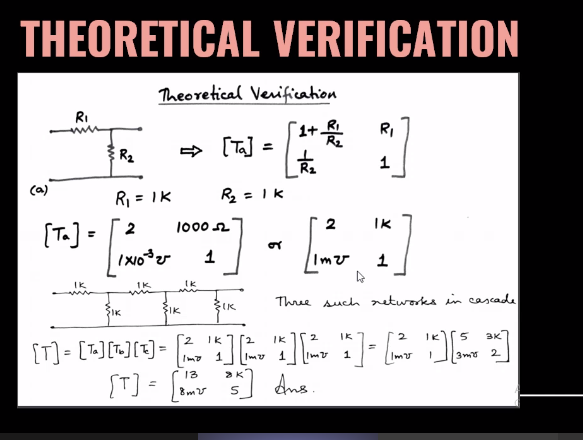 THEORETICAL VERIFICATION
Theoretical Verification
R1
R2
(a)
⇒ [Ta] = [1 + R1/R2 R1
1/R2 1]
R1 = 1K R2 = 1K
[Ta] = [2 1000 Ω
1x10^-3 ʊ 1] or [2 1K
1mʊ 1]
1K 1K 1K
1K 1K 1K
Three such networks in cascade
[T] = [Ta][Tb][Tc] = [2 1K
1mʊ 1] [2 1K
1mʊ 1] [2 1K
1mʊ 1] = [2 1K
1mʊ 1] [5 3K
3mʊ 2]
[T] = [13 8K
8mʊ 5] Ans.